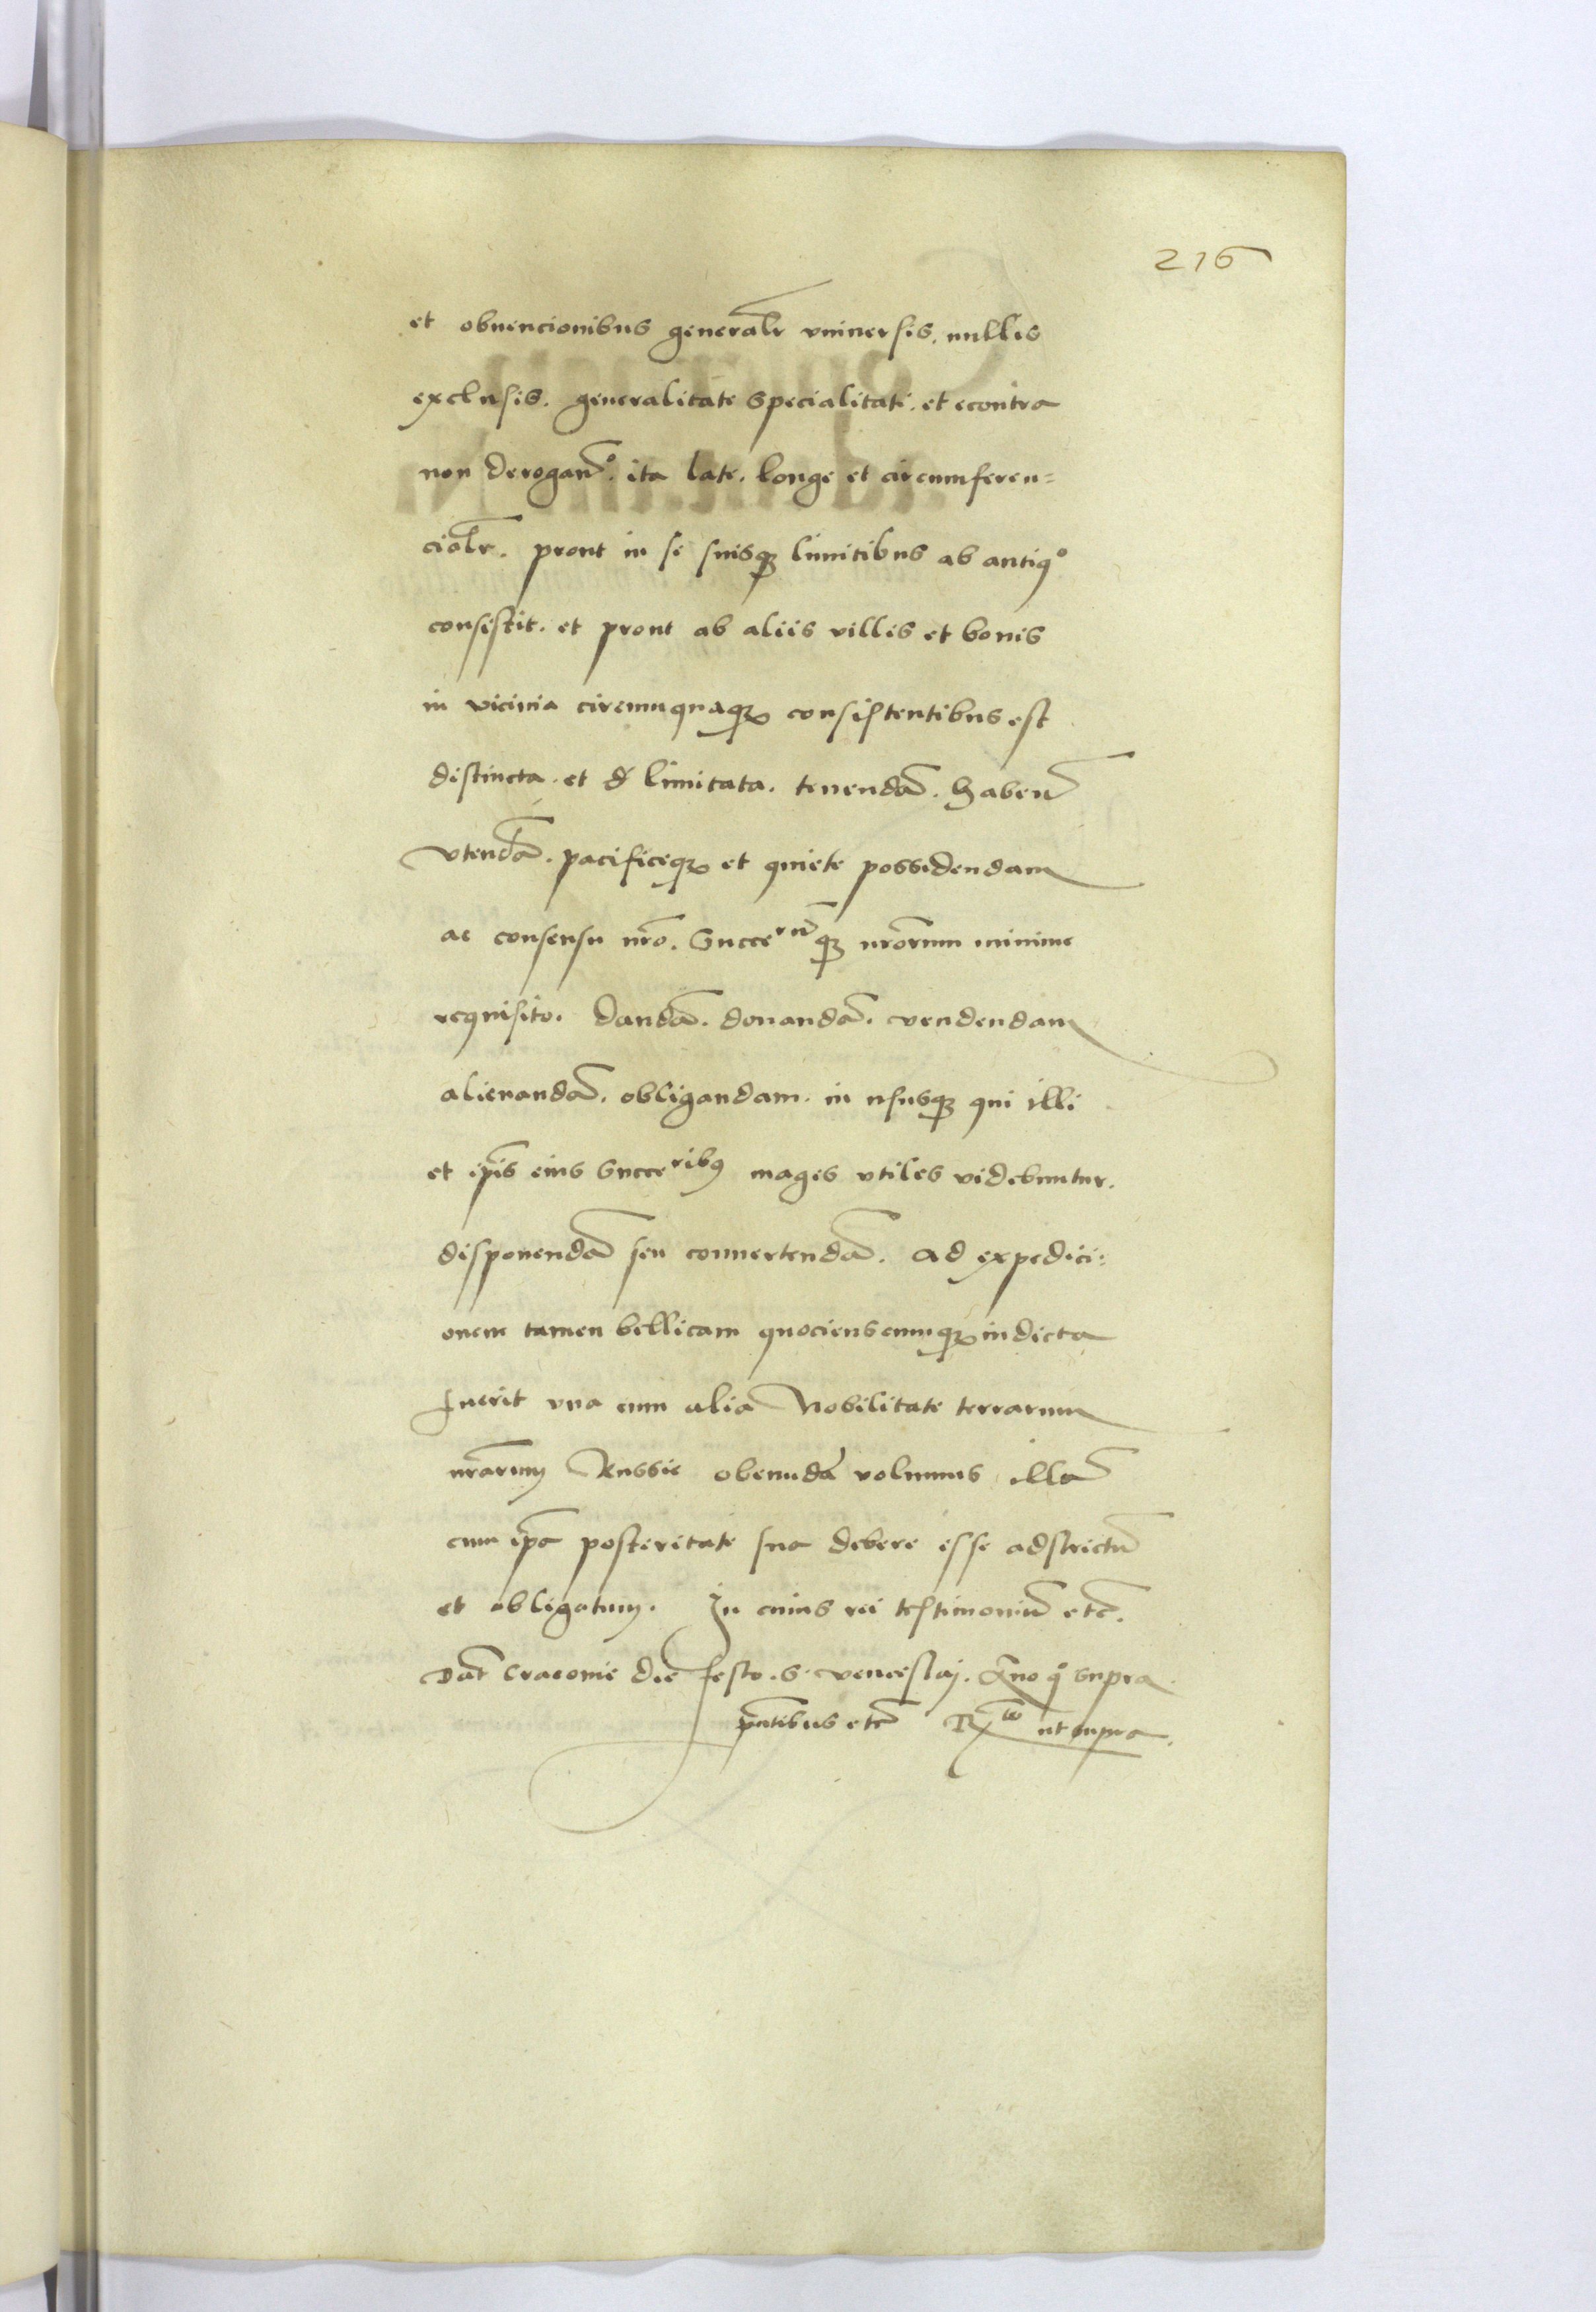 216
et obuencionibus generalr̄ vniuersis. nullis
exclusis. generalitate specialitati. et econtra
non derogan̄º. ita late. longe et circumferen=
cialr̄. prout in se suisqꝫ limitibus ab antiqº
consistit. et prout ab aliis villis et bonis
in vicinia circumquaqꝫ consistentibus est
distincta. et limitata. tenendā. haben̄
vtendā. pacificeqꝫ et quiete possidendam
ac consensu nr̄o. Succeʳūqꝫ nr̄orum minime
requisito. dandā. donandā. vendendam
alienandā. obligandam. in vsusqꝫ qui illi
et ip̄is eius Succeʳⁱᵇꝰ magis vtiles videbuntur.
disponendā seu conuertendā. ad expedici:
onem tamen bellicam quocienscumqꝫ indicta
fuerit vna cum alia Nobilitate terrarum
nr̄arum Russie obeundā volumus illū
cum ip̄a posteritate sua debere esse adstrictū
et obligatum. In cuius rei testimoniū etc̄.
Dat̄ Cracouie die festo. S. Venceslaj. Anno qº supra
pn̄tibus etc̄ Rᵗⁱᵒ ut supra.